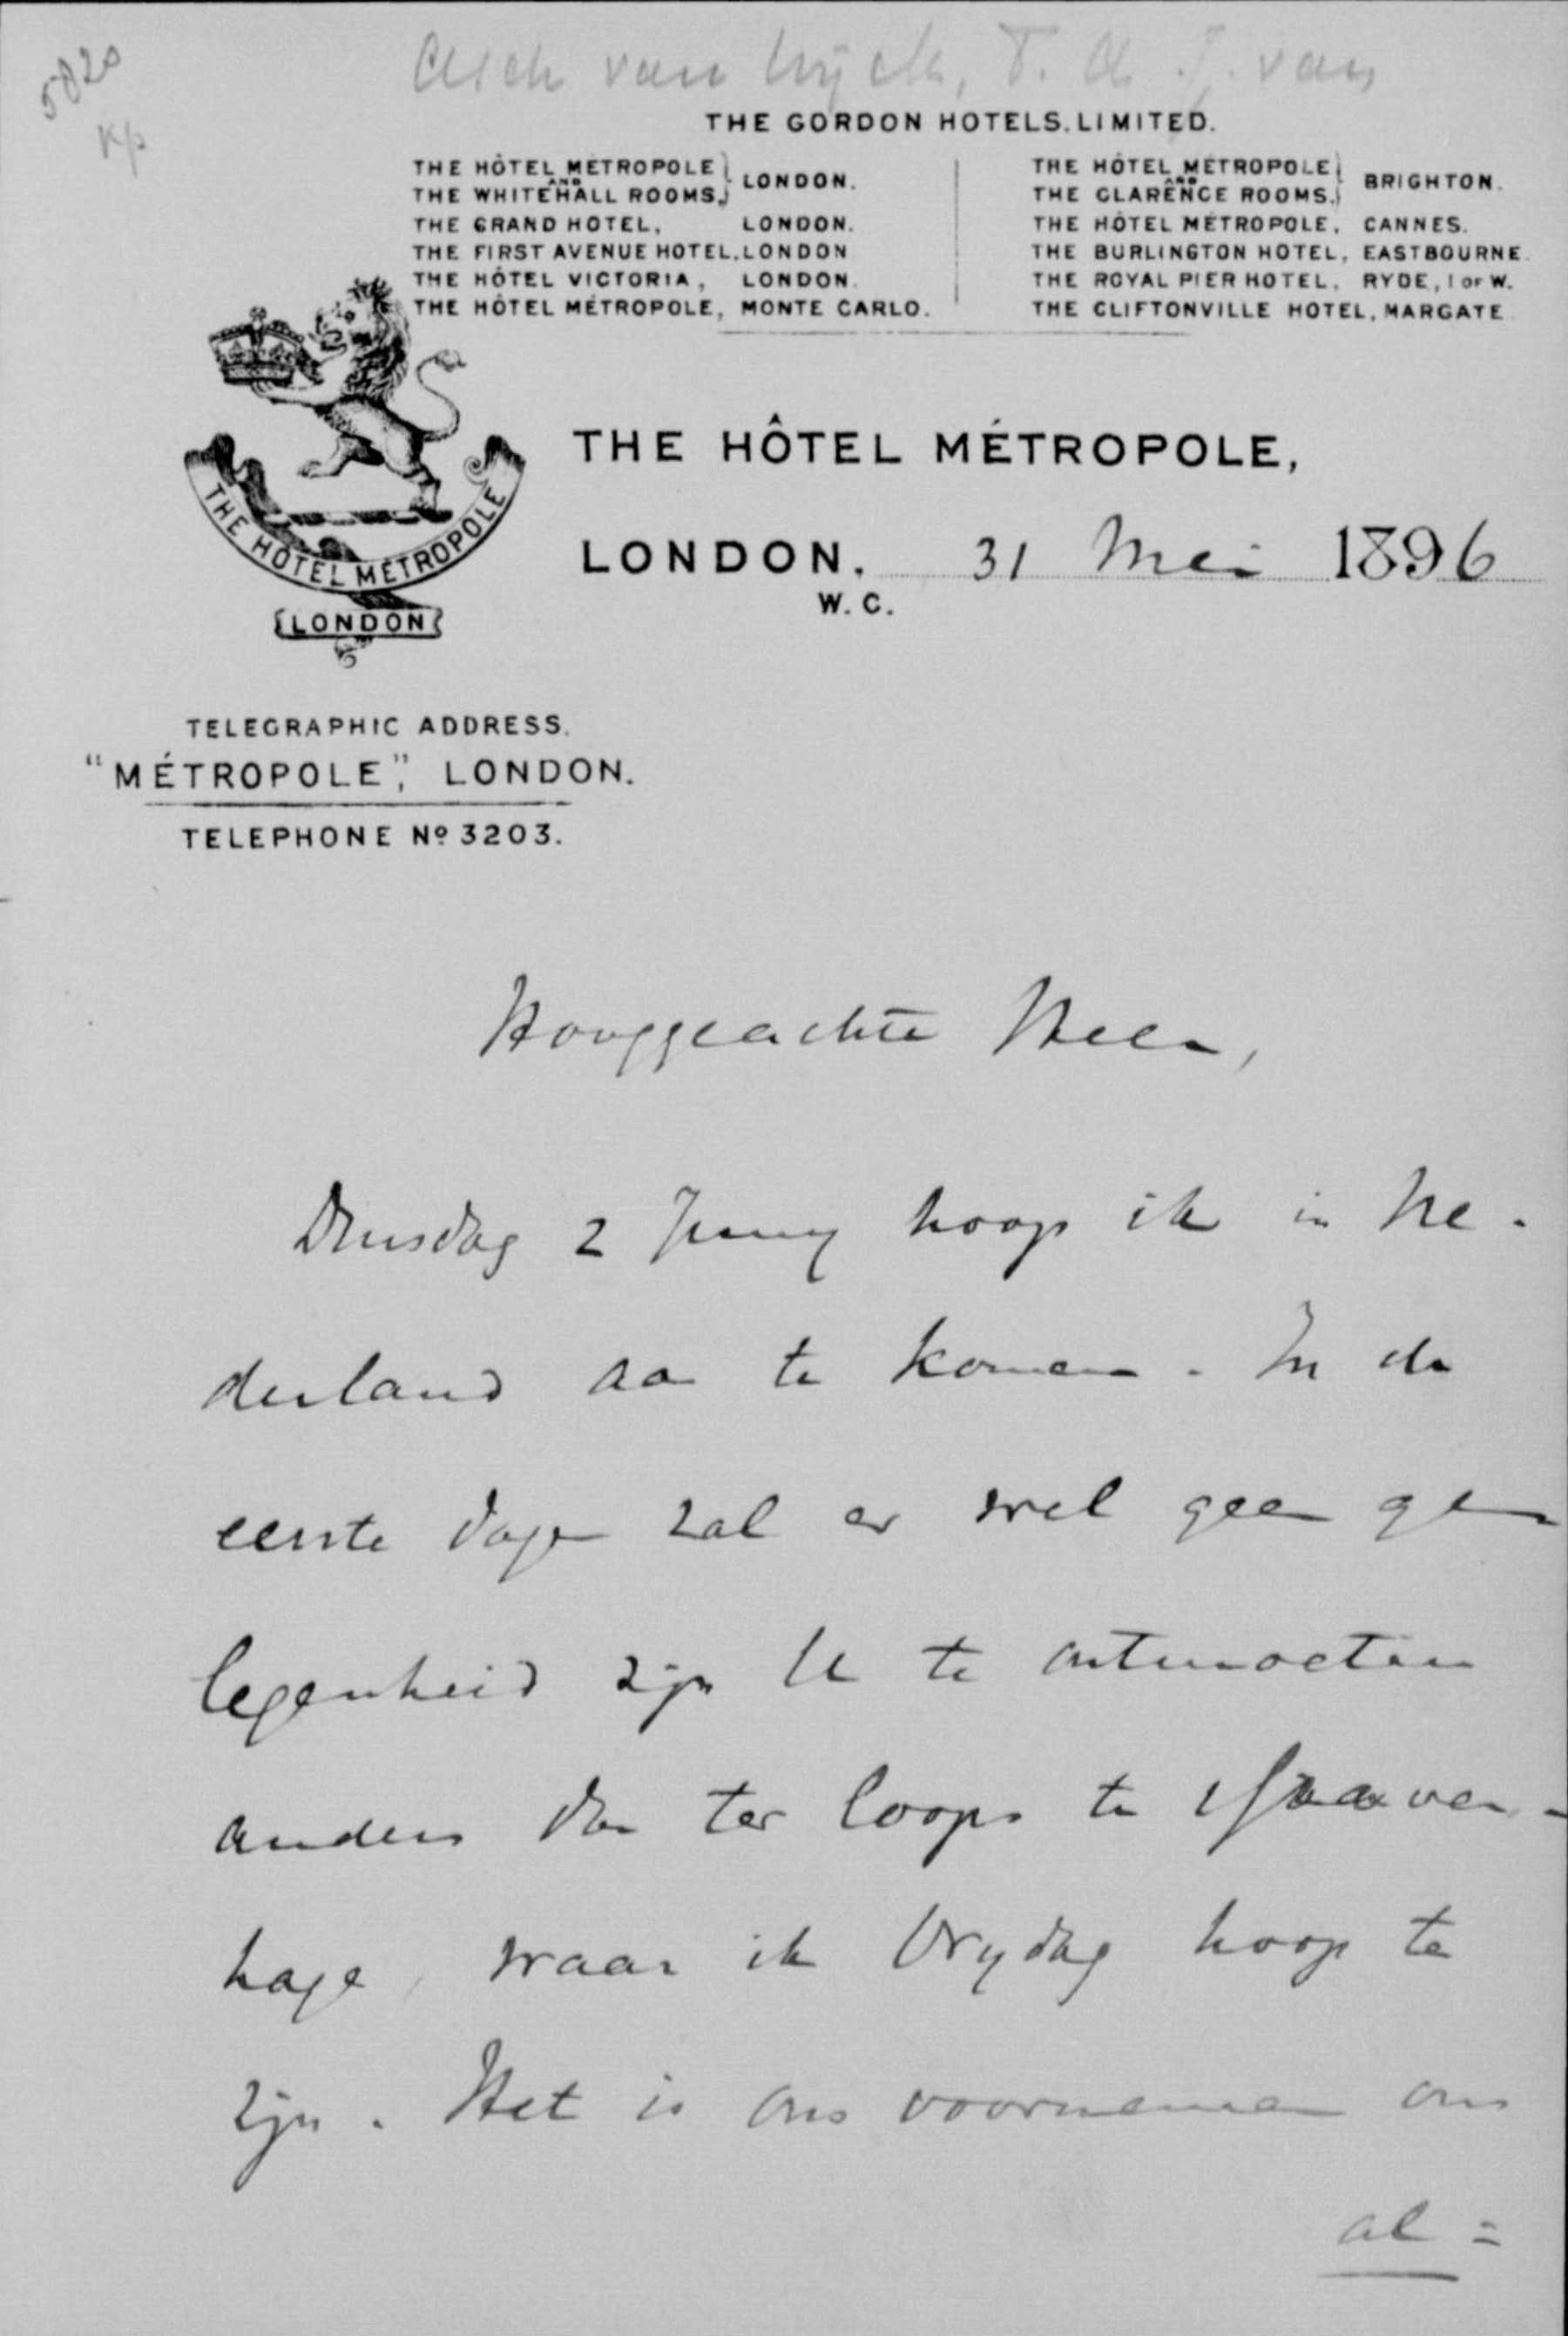 5820
Kp
Asch van Wijck, T. A. J. van
THE GORDON HOTELS. LIMITED.
THE HÔTEL MÉTROPOLE
AND
THE WHITEHALL ROOMS, LONDON.
THE GRAND HOTEL, LONDON.
THE FIRST AVENUE HOTEL. LONDON
THE HÔTEL VICTORIA, LONDON.
THE HÔTEL MÉTROPOLE, MONTE CARLO.
THE HÔTEL MÉTROPOLE
AND
THE CLARENCE ROOMS. BRIGHTON.
THE HÔTEL MÉTROPOLE, CANNES.
THE BURLINGTON HOTEL, EASTBOURNE.
THE ROYAL PIER HOTEL, RYDE, I OF W.
THE CLIFTONVILLE HOTEL, MARGATE
THE HÔTEL MÉTROPOLE
LONDON
THE HÔTEL MÉTROPOLE,
LONDON. 31 Mei 1896
W. C.
TELEGRAPHIC ADDRESS.
"MÉTROPOLE", LONDON.
TELEPHONE Nº 3203.
Hooggeachte Heer,
Dinsdag 2 Juny hoop ik in Ne-
derland aan te komen. In de
eerste dagen zal er wel geen ge-
legenheid zijn U te ontmoeten
anders dan ter loops te 's Graven-
hage, waar ik Vrydag hoop te
zijn. Het is ons voornemen ons
al=